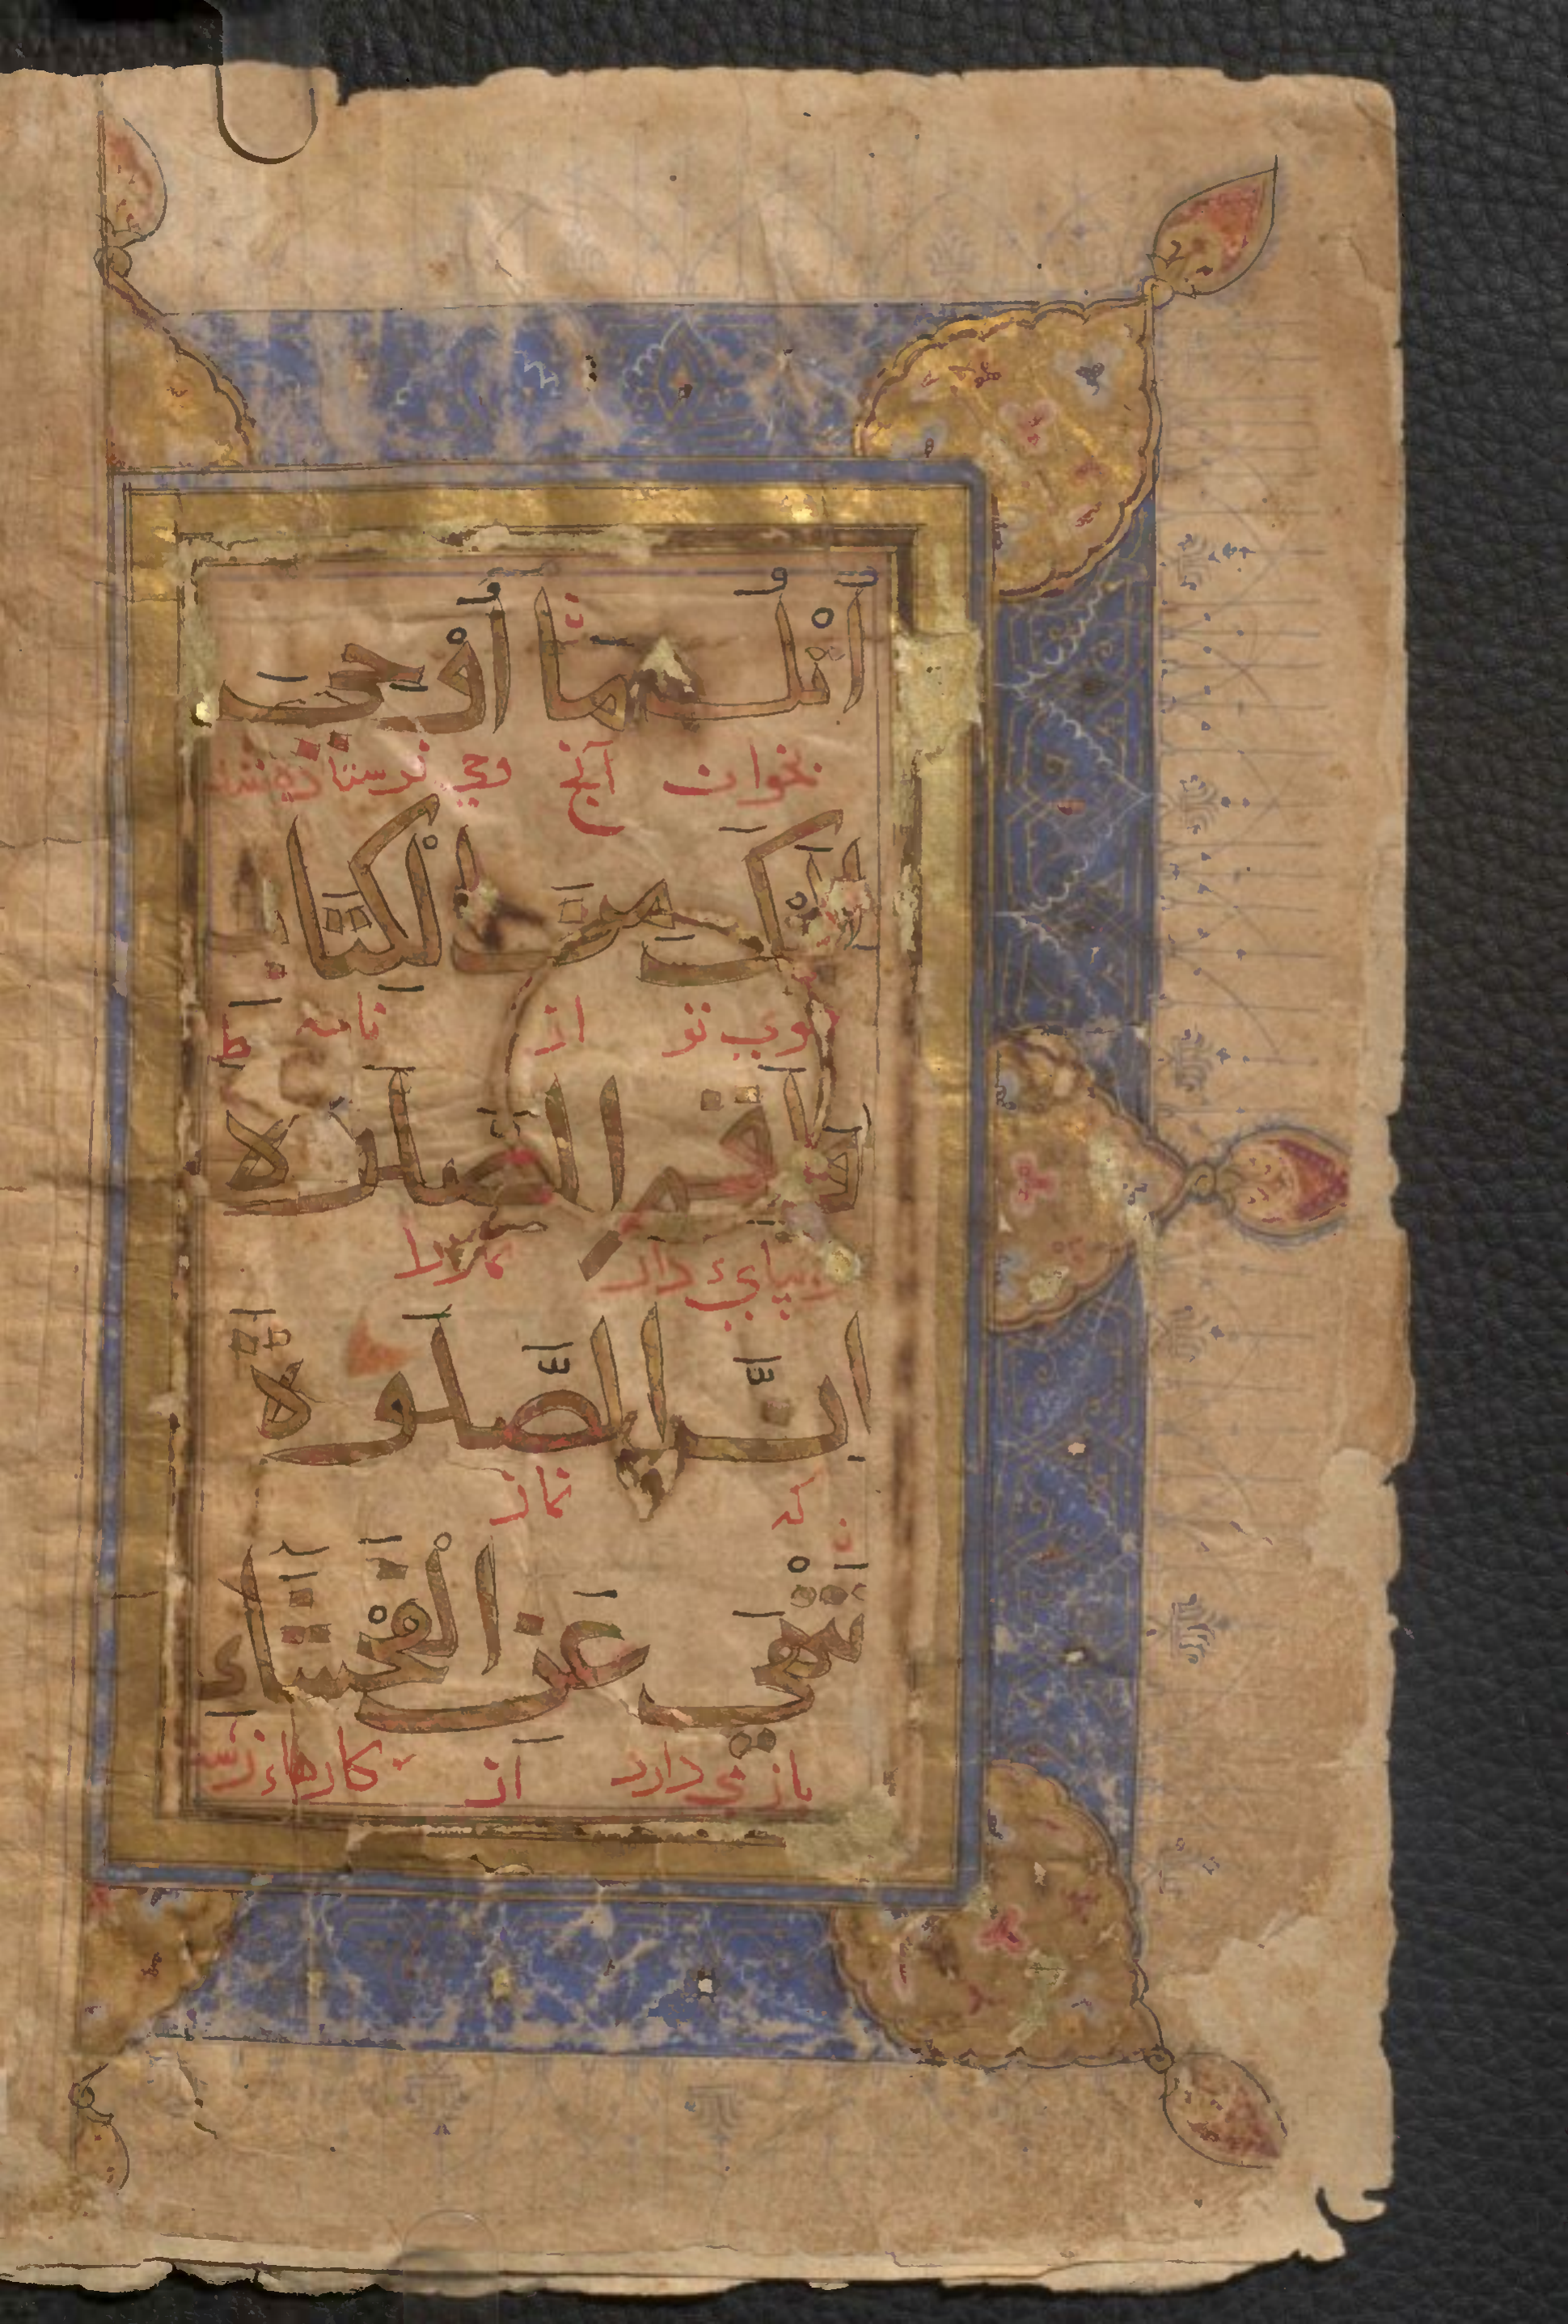 اُتْلُ مَا أُوْحِيَ
بخوان آنچ وحي فرستاده شد
اِلَيْكَ مِنَ الْكِتَابِ
سوي تو از نامه
وَاَقِمِ الصَّلَوٰةَ
وبپايء دار نمازرا
اِنَّ الصَّلَوٰةَ
که نماز
تَنْهَي عَنِ الْفَحْشَآءِ
باز مي دارد از کارهاء زشت